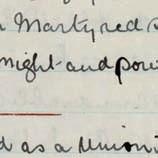 Martyred
might and pow
as a Union